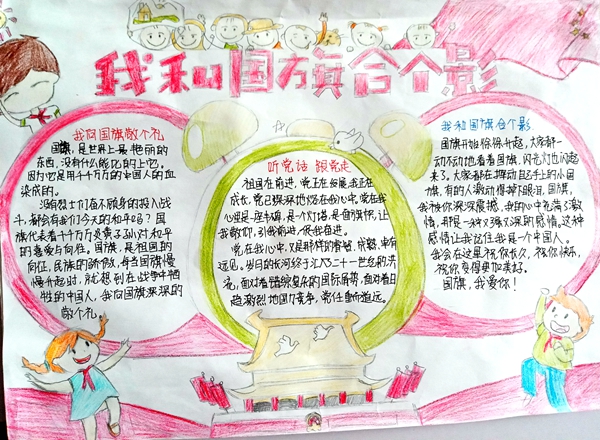 我和国旗合个影
我向国旗敬个礼
国旗,是世界上最艳丽的
东西,没有什么能比的上它。
因为它是用千千万万的中国人的血
染成的。
没有烈士们奋不顾身的投入战
斗,都会有我们今天的和平吗?国
旗代表着千千万万炎黄子孙对和平
的喜爱与向往。国旗,是祖国的
向征,民族的骄傲,每当国旗慢
慢升起时,就想到在战争中牺
牲的中国人,我向国旗深深的
敬个礼。
听党话 跟党走
祖国在前进,党正在发展,我正在
成长,党已深深地烙在我心中,党在我
心里是一座丰碑,是一个灯塔,是面旗帜,让
我敬仰,引我前进,促我奋进。
党在我心中,又是那样的睿智、成熟、富有
远见。岁月的长河终于汇入二十一世纪的洪
流,面对着错综复杂的国际局势,面对着日
趋激烈地国力竞争,党任重而道远。
我和国旗合个影
国旗开始徐徐升起,大家都一
动不动地看着国旗,闪光灯也闪起
来了。大家都在挥动自己手上的小国
旗,有的人激动得掉下眼泪。国旗,
我被你深深震撼,我的心中充满了激
情,那是一种又强又深的感情。这种
感情让我记住我是一个中国人。
我会在这里祝你长久,祝你快乐,
祝你变得更加美好。
国旗,我爱你!